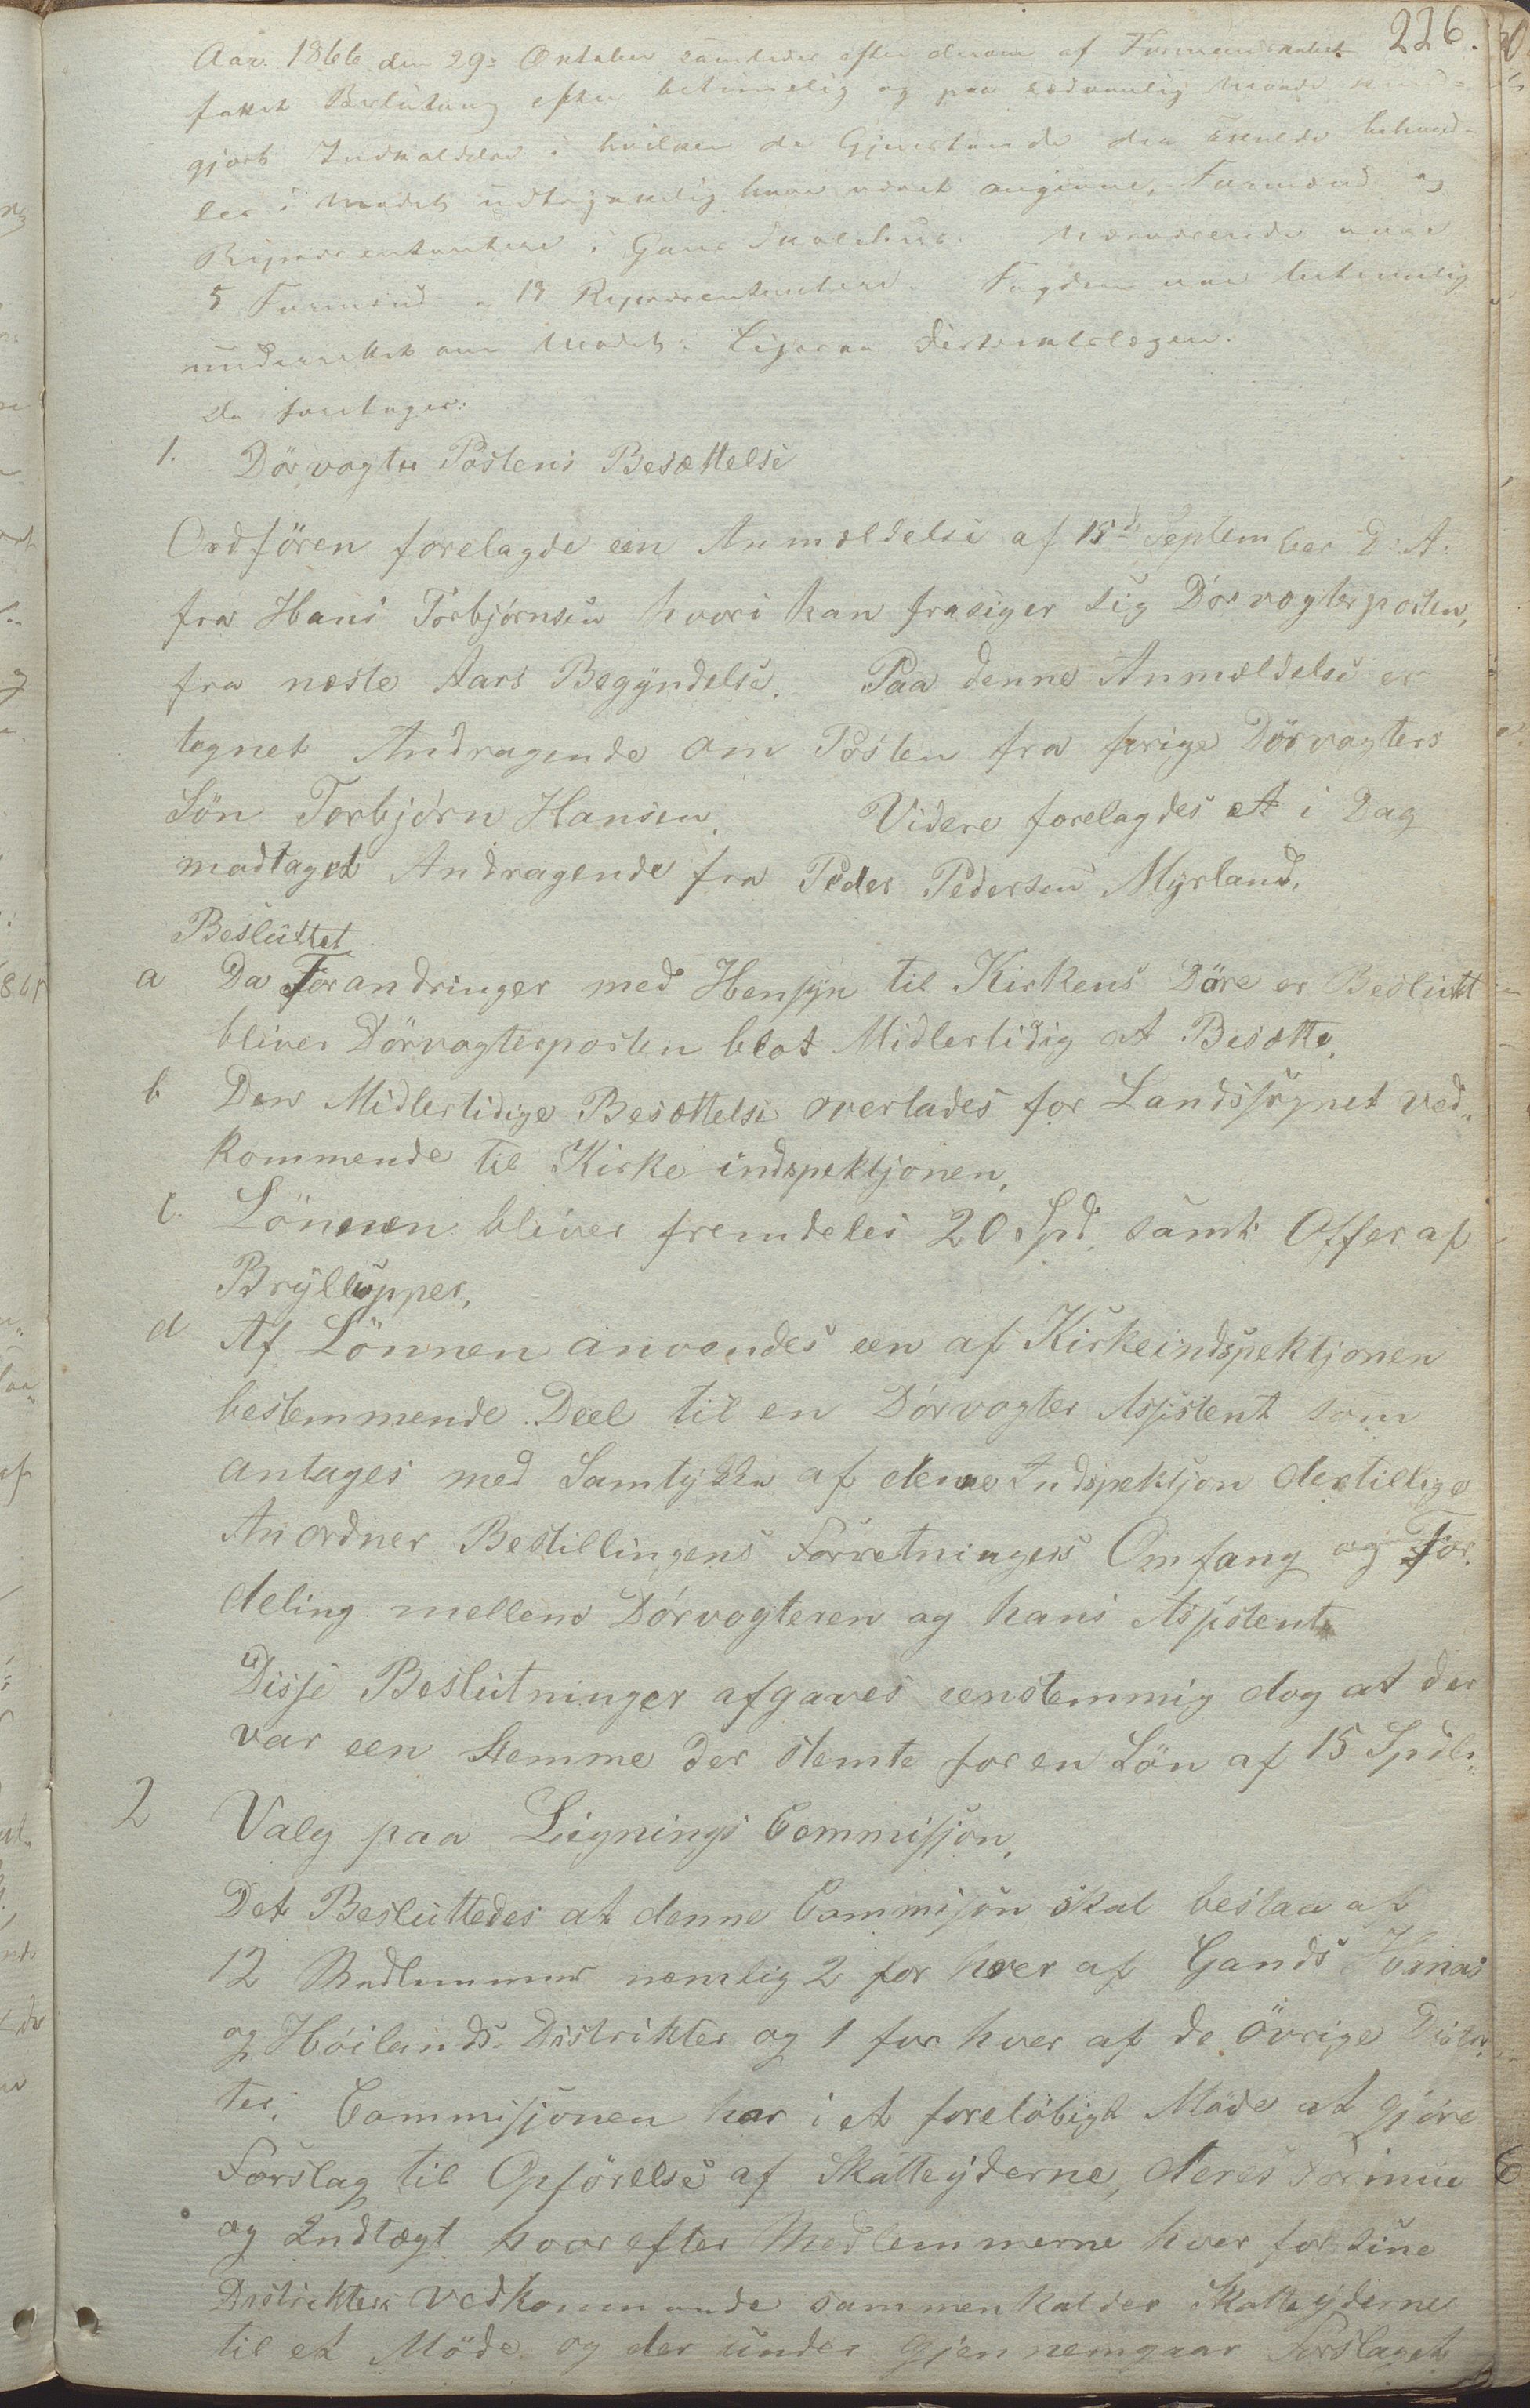 226.
Aar. 1866 den 29de Oktober samledes efter derom af Formandskabet
fattet Beslutning efter betimelig og paa sædvanlig Maade kund-
gjort Indkaldelse i hvilken de Gjenstande der skulde behand-
les i Mødet udtrykkelig have været angivne, Formænd og
Repræsentantere i Gans Skolehus. Nærværende vare
5 Formænd og 13 Repræsentantere. Fogden var betimelig
underrettet om Mødet. Ligesaa Distriktslægen.
Da foretoges:
1. Dörvogter Postens Besættelse
Ordfören forelagde een Anmældelse af 15de September D: A:
fra Hans Torbjörnsen hvori han frasiger sig Dörvogterposten,
fra næste Aars Begyndelse. Paa denne Anmældelse er
tegnet Andragende om Posten fra forige Dörvagters
Sön Torbjörn Hansen. Videre forelagdes et i Dag
modtaget Andragende fra Peder Pedersen Myrland.
Besluttet
a Da Forandringer med Hensyn til Kirkens Döre er Beslutt
bliver Dörvogterposten blot Midlertidig at Besætte.
b Den Midlertidige Besættelse overlades for Landssognet ved„
kommende til Kirke indspektjonen.
c. Lönnen bliver fremdeles 20 Spd. samt Offer af
Brylluppper.
d Af Lönnen anvendes een af Kirkeindspektjonen
bestemmende Deel til en Dörvogter Assistent som
antages med Samtykke af denne Indspektjon dertillige
Anordner Bestillingens Forretningers Omfang og For„
deling mellem Dörvogteren og hans Assistent
Disse Beslutninger afgaves eenstemmig dog at der
var een Stemme der stemte for en Lön af 15 Spdlr.
2 Valg paa Lignings Commissjon.
Det Besluttedes at denne Commisjon skal bestaa af
12 Medlemmer nemlig 2 for hver af Gands
og Höilands Distrikter og 1 for hver af de övrige Distr„
ter. Commissjonen har i et forelöbigt Möde at gjöre
Forslag til Opförelse af Skatteyderne, deres Formue
og Indtægt hvor efter Medlemmerne hver for sine
Distrikters vedkommende sammenkalder Skatteyderne
til et Möde og der under gjennemgaar Forslaget